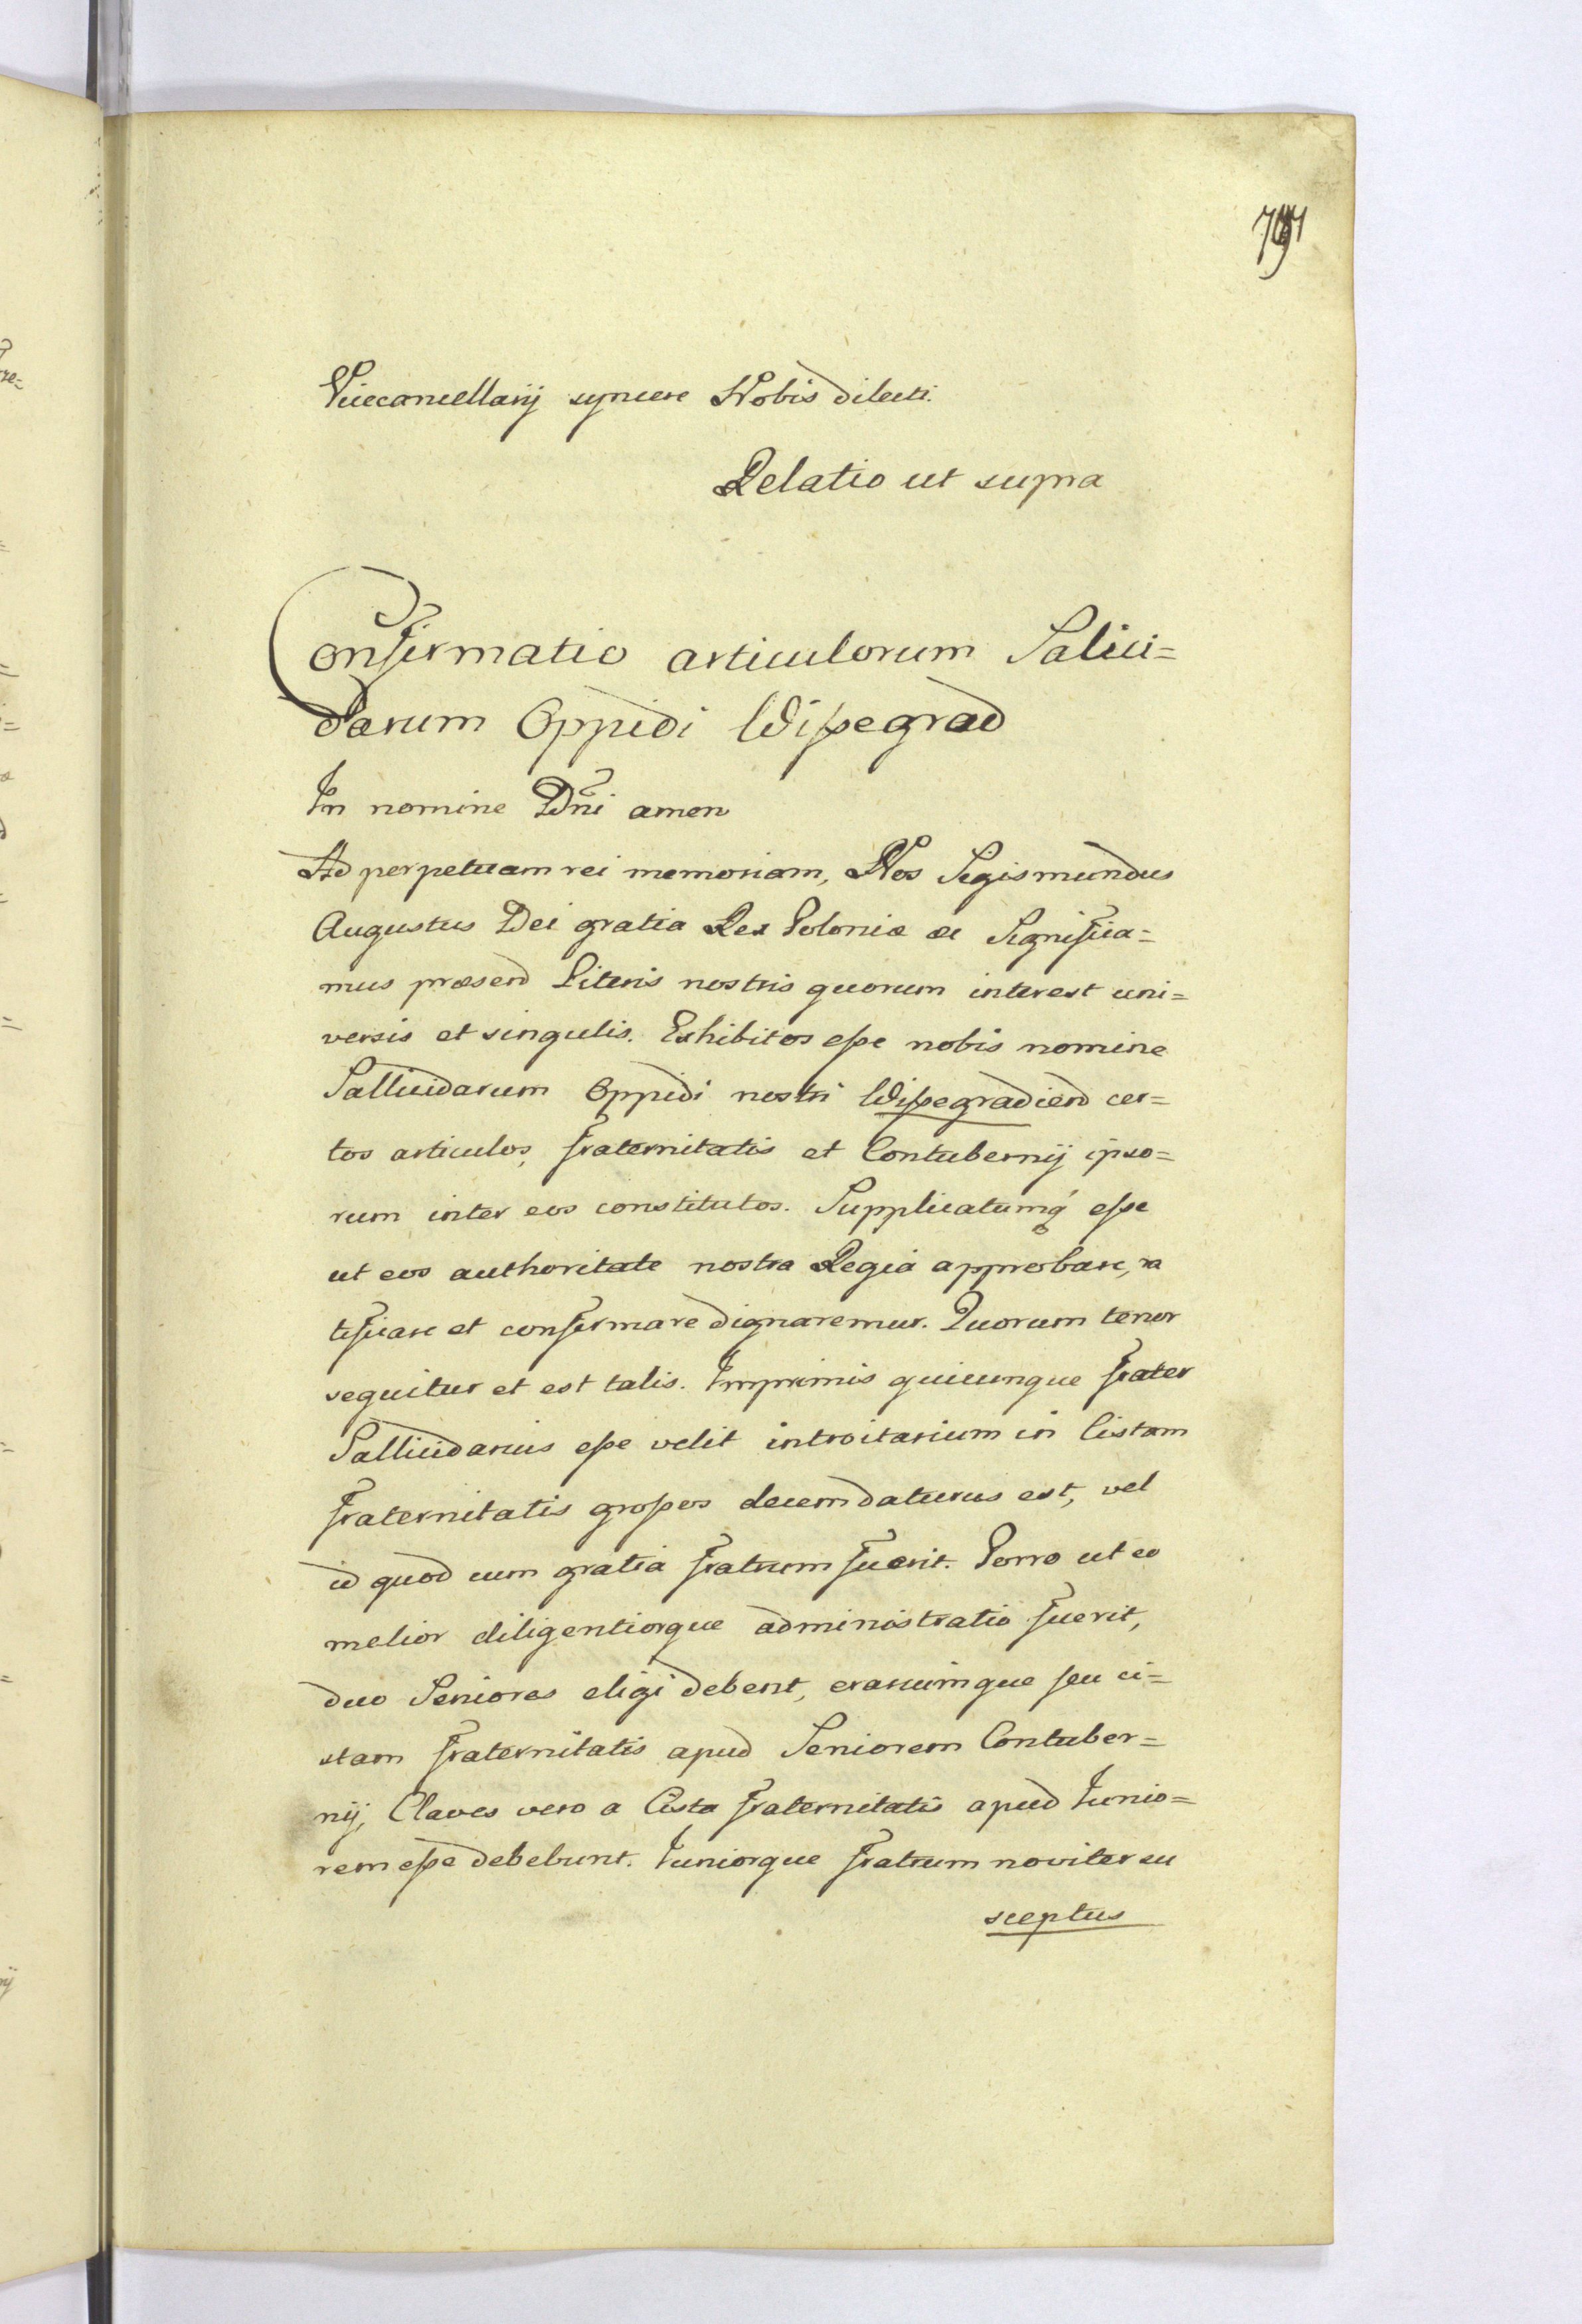 Vicecancellarij syncere Nobis dilecti.
Relatio ut supra
Confirmatio articulorum Salici=
darum Oppidi Wiszegrad
In nomine Dni amen
Ad perpetuam rei memoriam, Nos Sigismundus
Augustus Dei gratia Rex Poloniæ &c Significa=
mus præsend Literis nostris quorum interest uni=
versis et singulis. Exhibitos eſse nobis nomine
Sallicidarum Oppidi nostri Wiszegradiend cer=
tos articulos, fraternitatis et Contubernij ipso=
rum inter eos constitutos. Supplicatumq́ eſse
ut eos authoritate nostra Regia approbare, ra
tificare et confirmare dignaremur. Quorum tenor
sequitur et est talis. Imprimis quicunque frater
Sallicidarius eſse velit introitarium in Cistam
fraternitatis groſsos decem daturus est, vel
id quod cum gratia fratrum fuerit. Porro ut eo
melior diligentiorque administratio fuerit,
duo Seniores eligi debent, erariumque seu ci=
stam fraternitatis apud Seniorem Contuber=
nij, Claves vero a Cista fraternitatis apud Iunio=
rem eſse debebunt. Iuniorque fratrum noviter su
sceptus